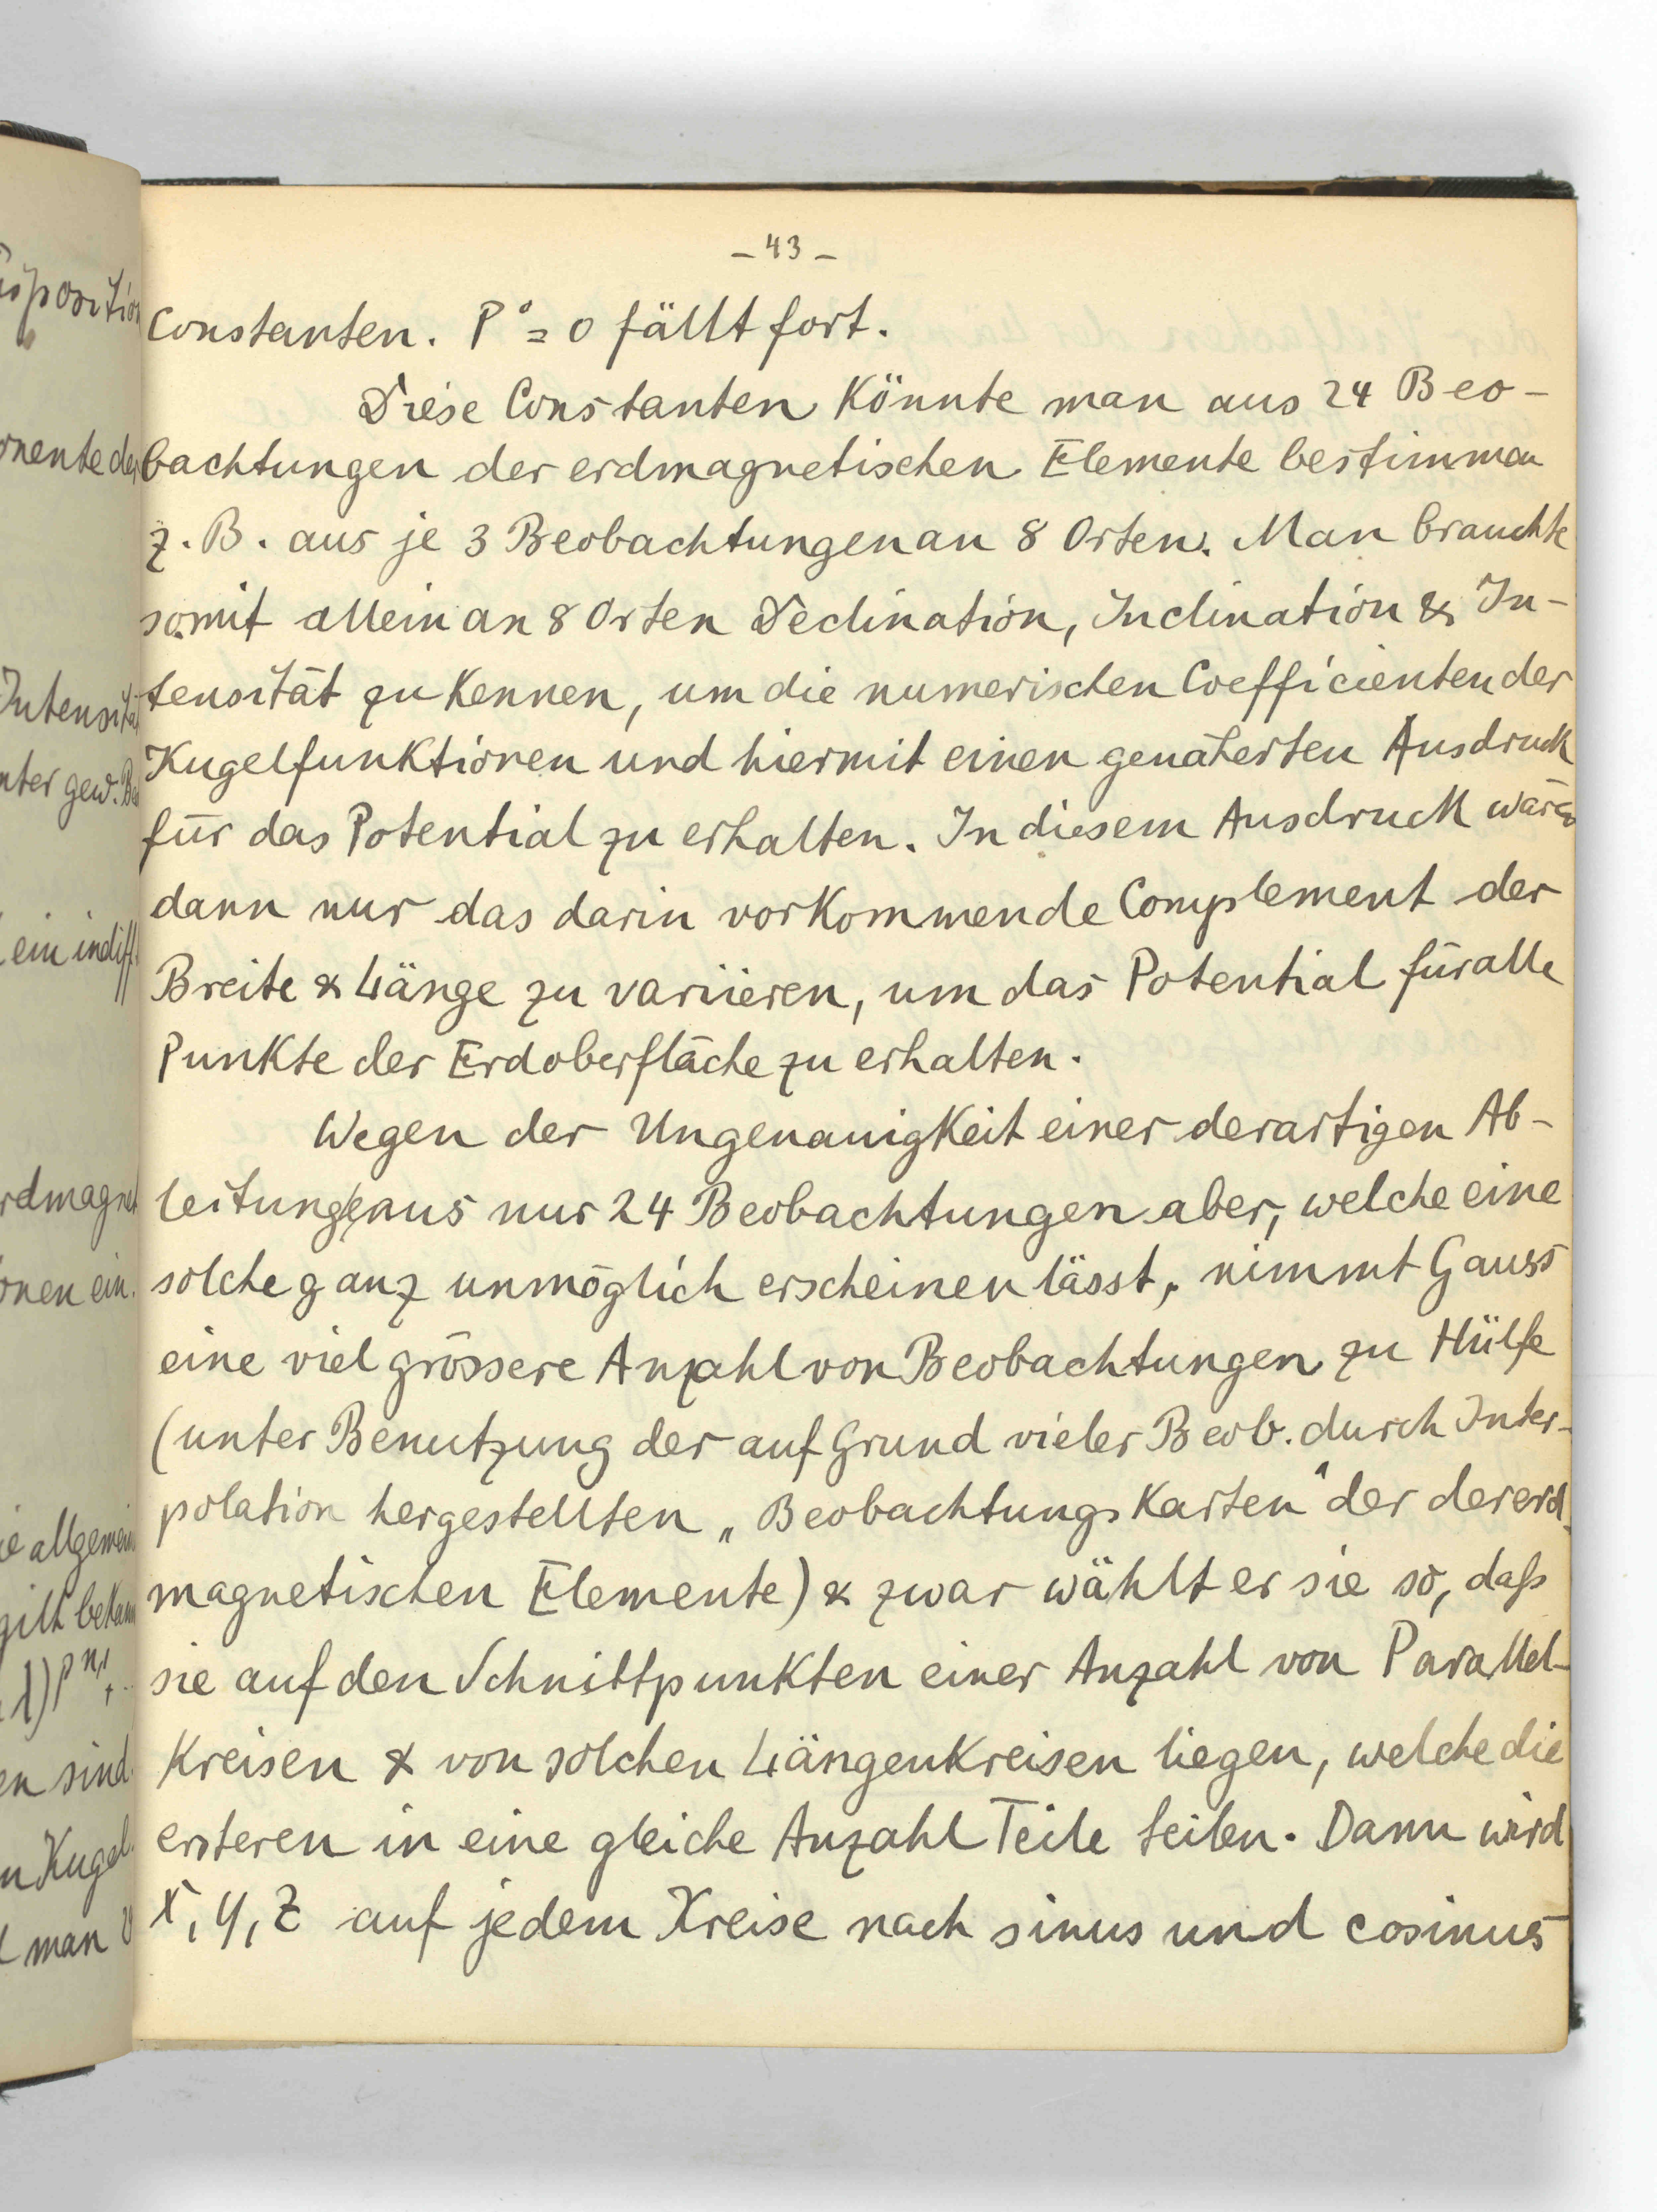 - 43 -
Constanten. P° = 0 fällt fort.
Diese Constanten könnte man aus 24 Beo-
bachtungen der erdmagnetischen Elemente bestimmen
z. B. aus je 3 Beobachtungen an 8 Orten. Man brauchte
somit allein an 8 Orten Declination, Inclination & In-
tensität zu kennen, um die numerischen Coefficienten der
Kugelfunktionen und hiermit einen genäherten Ausdruck
für das Potential zu erhalten. In diesem Ausdruck wären
dann nur das darin vorkommende Complement der
Breite & Länge zu variieren, um das Potential für alle
Punkte der Erdoberfläche zu erhalten.
Wegen der Ungenauigkeit einer derartigen Ab-
leitung aus nur 24 Beobachtungen aber, welche eine
solche ganz unmöglich erscheinen lässt, nimmt Gauss
eine viel grössere Anzahl von Beobachtungen zu Hülfe
(unter Benutzung der auf Grund vieler Beob. durch Inter-
polation hergestellten „Beobachtungskarten" der der erd-
magnetischen Elemente) & zwar wählt er sie so, daß
sie auf den Schnittpunkten einer Anzahl von Parallel-
Kreisen & von solchen Längenkreisen liegen, welche die
ersteren in eine gleiche Anzahl Teile teilen. Dann wird
X, Y, Z auf jedem Kreise nach sinus und cosinus